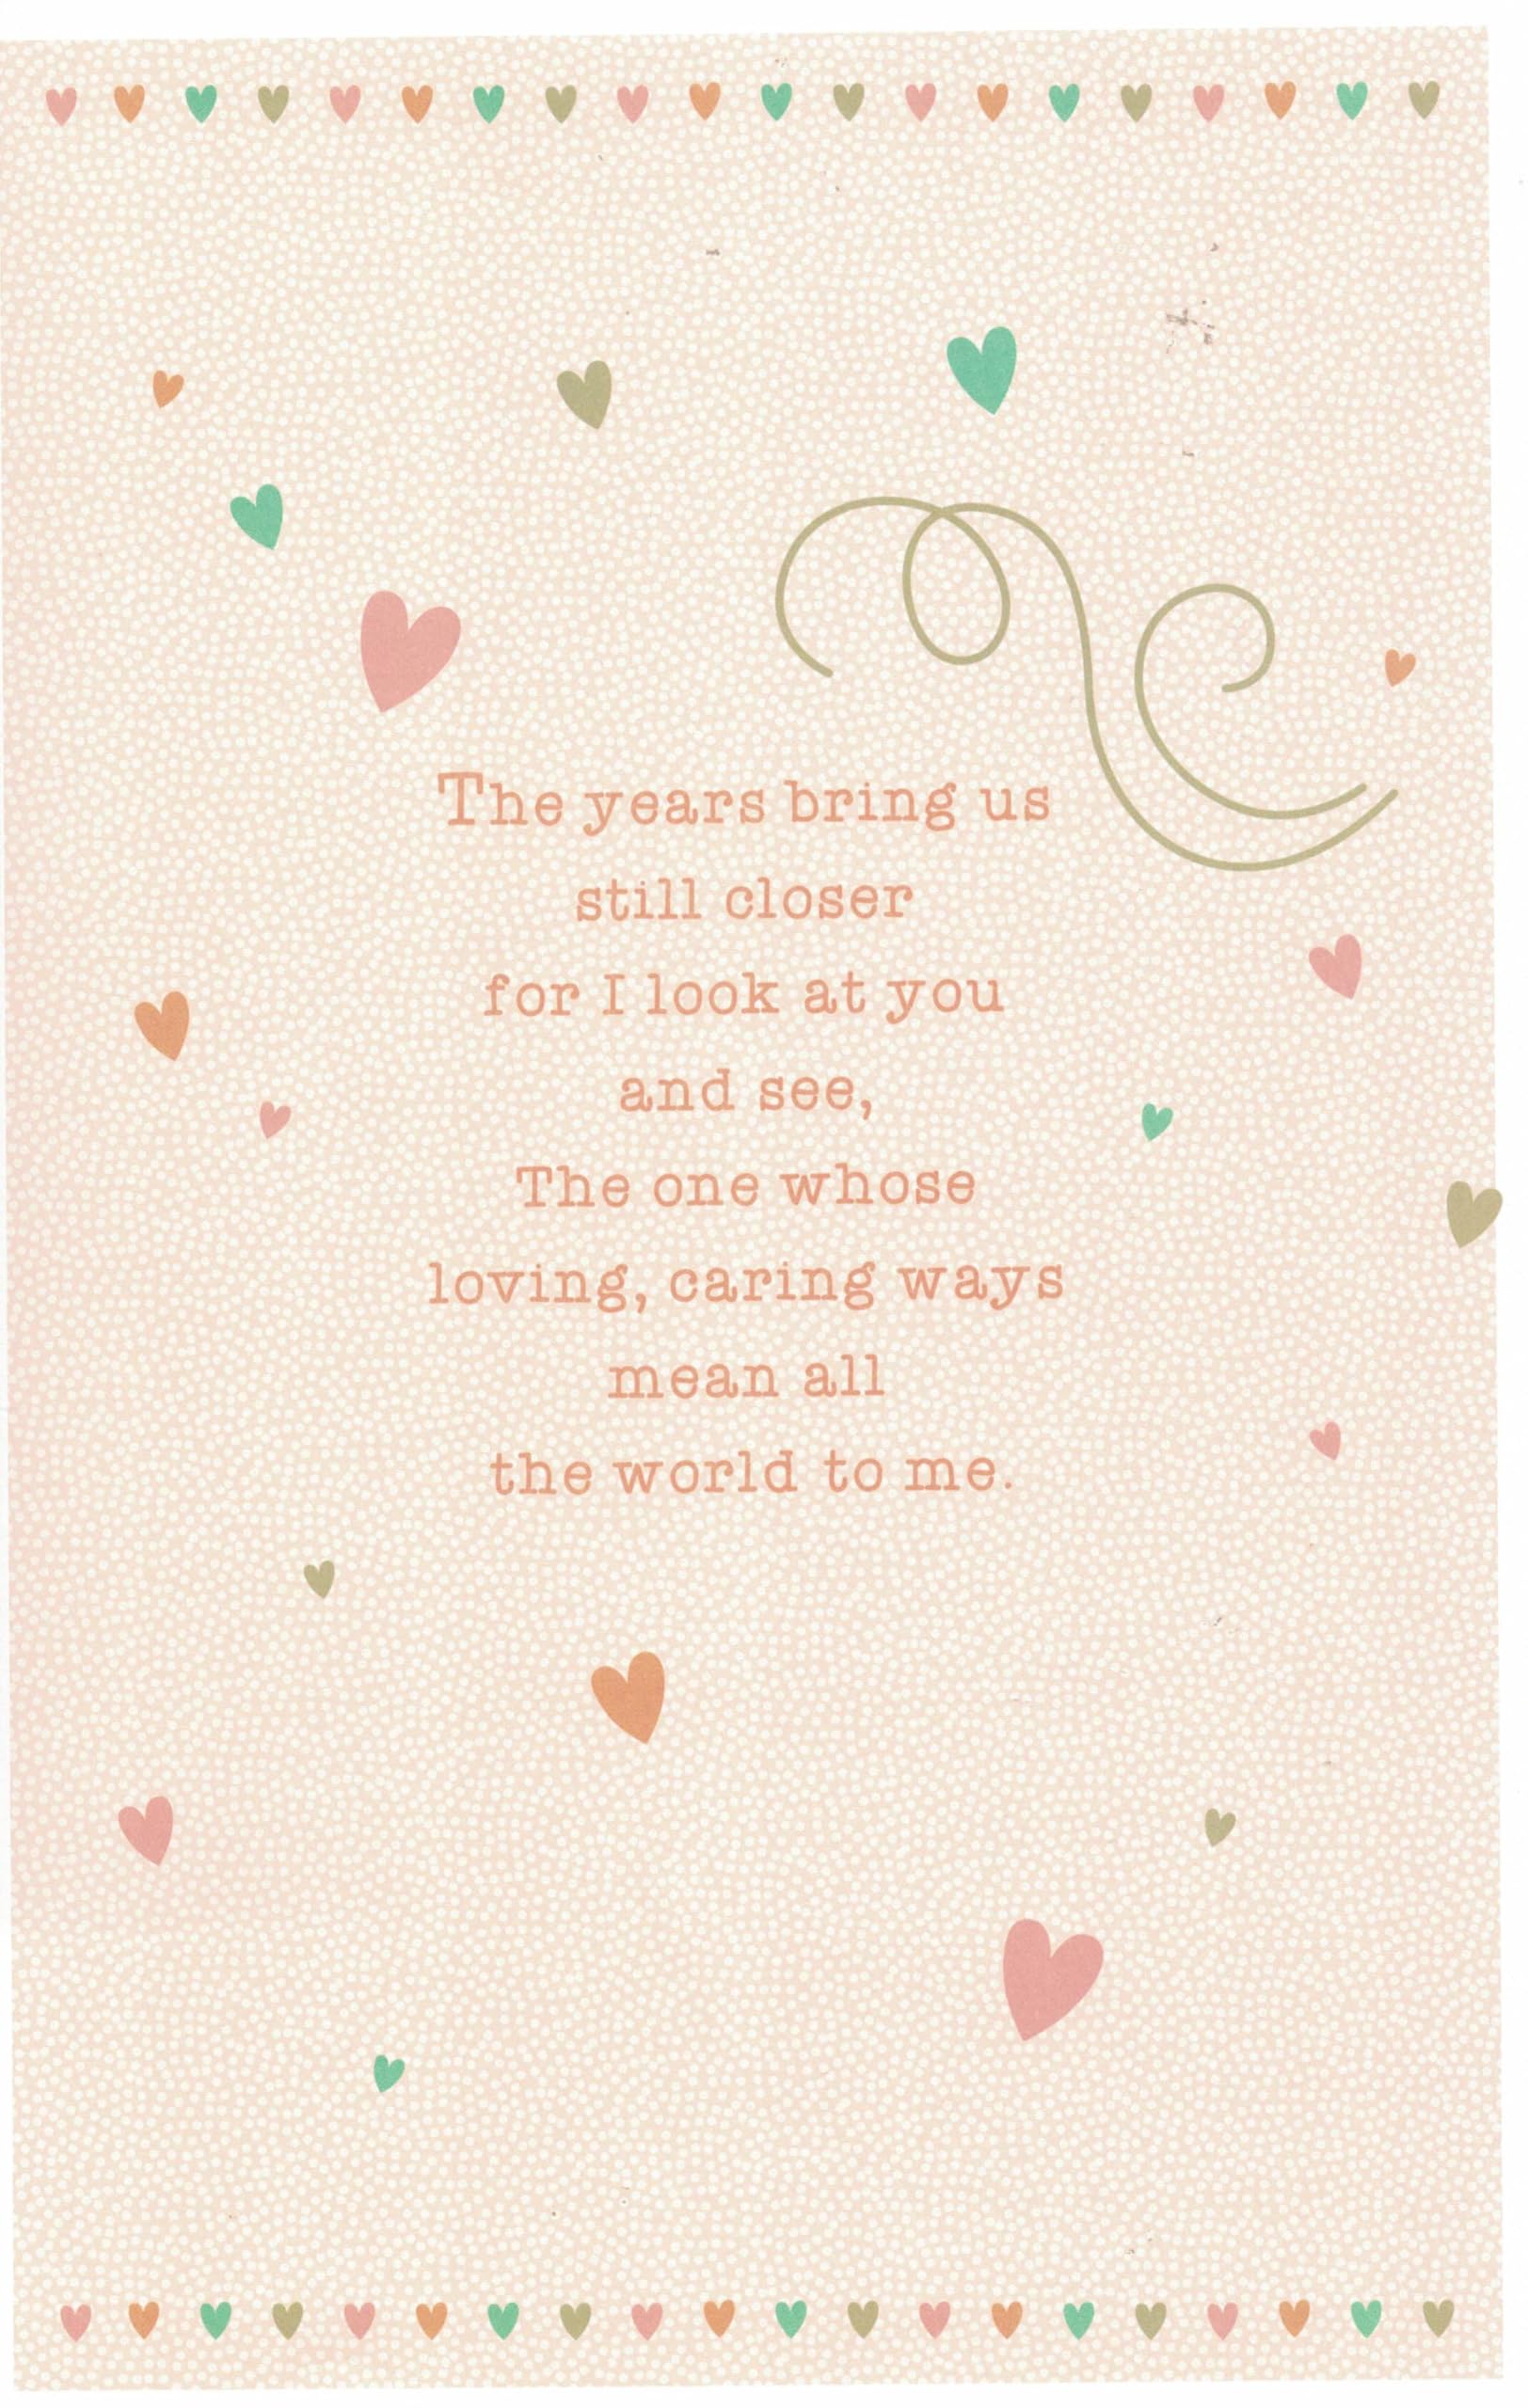 The years bring us
still closer
for I look at you
and see,
The one whose
loving, caring ways
mean all
the world to me.